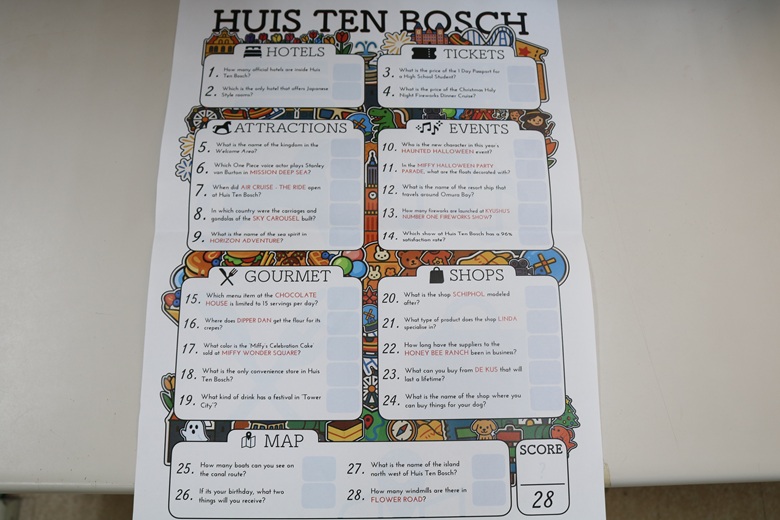 HUIS TEN BOSCH
HOTELS
1. How many official hotels are inside Huis
Ten Bosch?
2. Which is the only hotel that offers Japanese
Style rooms?
TICKETS
3. What is the price of the 1 Day Passport for
a High School Student?
4. What is the price of the Christmas Holy
Night Fireworks Dinner Cruise?
ATTRACTIONS
5. What is name of the kingdom in the
Welcome Area?
6. Which One Piece voice actor plays Stanley
van Burton in MISSION DEEP SEA?
7. When did AIR CRUISE - THE RIDE open
at Huis Ten Bosch?
8. In which country were the carriages and
gondolas of the SKY CAROUSEL built?
9. What is the name of the sea spirit in
HORIZON ADVENTURE?
EVENTS
10. Who is the new character in this year's
HAUNTED HALLOWEEN event?
11. In the MIFFY HALLOWEEN PARTY
PARADE, what are the floats decorated with?
12. What is the name of the resort ship that
travels around Omura Bay?
13. How many fireworks are launched at KYUSHU'S
NUMBER ONE FIREWORKS SHOW?
14. Which show at Huis Ten Bosch has a 96%
satisfaction rate?
GOURMET
15. Which menu item at the CHOCOLATE
HOUSE is limited to 15 servings per day?
16. Where does DIPPER DAN get the flour for its
crepes?
17. What color is the 'Miffy's Celebration Cake'
sold at MIFFY WONDER SQUARE?
18. What is the only convenience store in Huis
Ten Bosch?
19. What kind of drink has a festival in 'Tower
City'?
SHOPS
20. What is the shop SCHIPHOL modeled
after?
21. What type of product does the shop LINDA
specialise in?
22. How long have the suppliers to the
HONEY BEE RANCH been in business?
23. What can you buy from DE KUS that will
last a lifetime?
24. What is the name of the shop where you
can buy things for your dog?
MAP
25. How many boats can you see on
the canal route?
26. If its your birthday, what two
things will you receive?
27. What is the name of the island
north west of Huis Ten Bosch?
28. How many windmills are there in
FLOWER ROAD?
SCORE
28